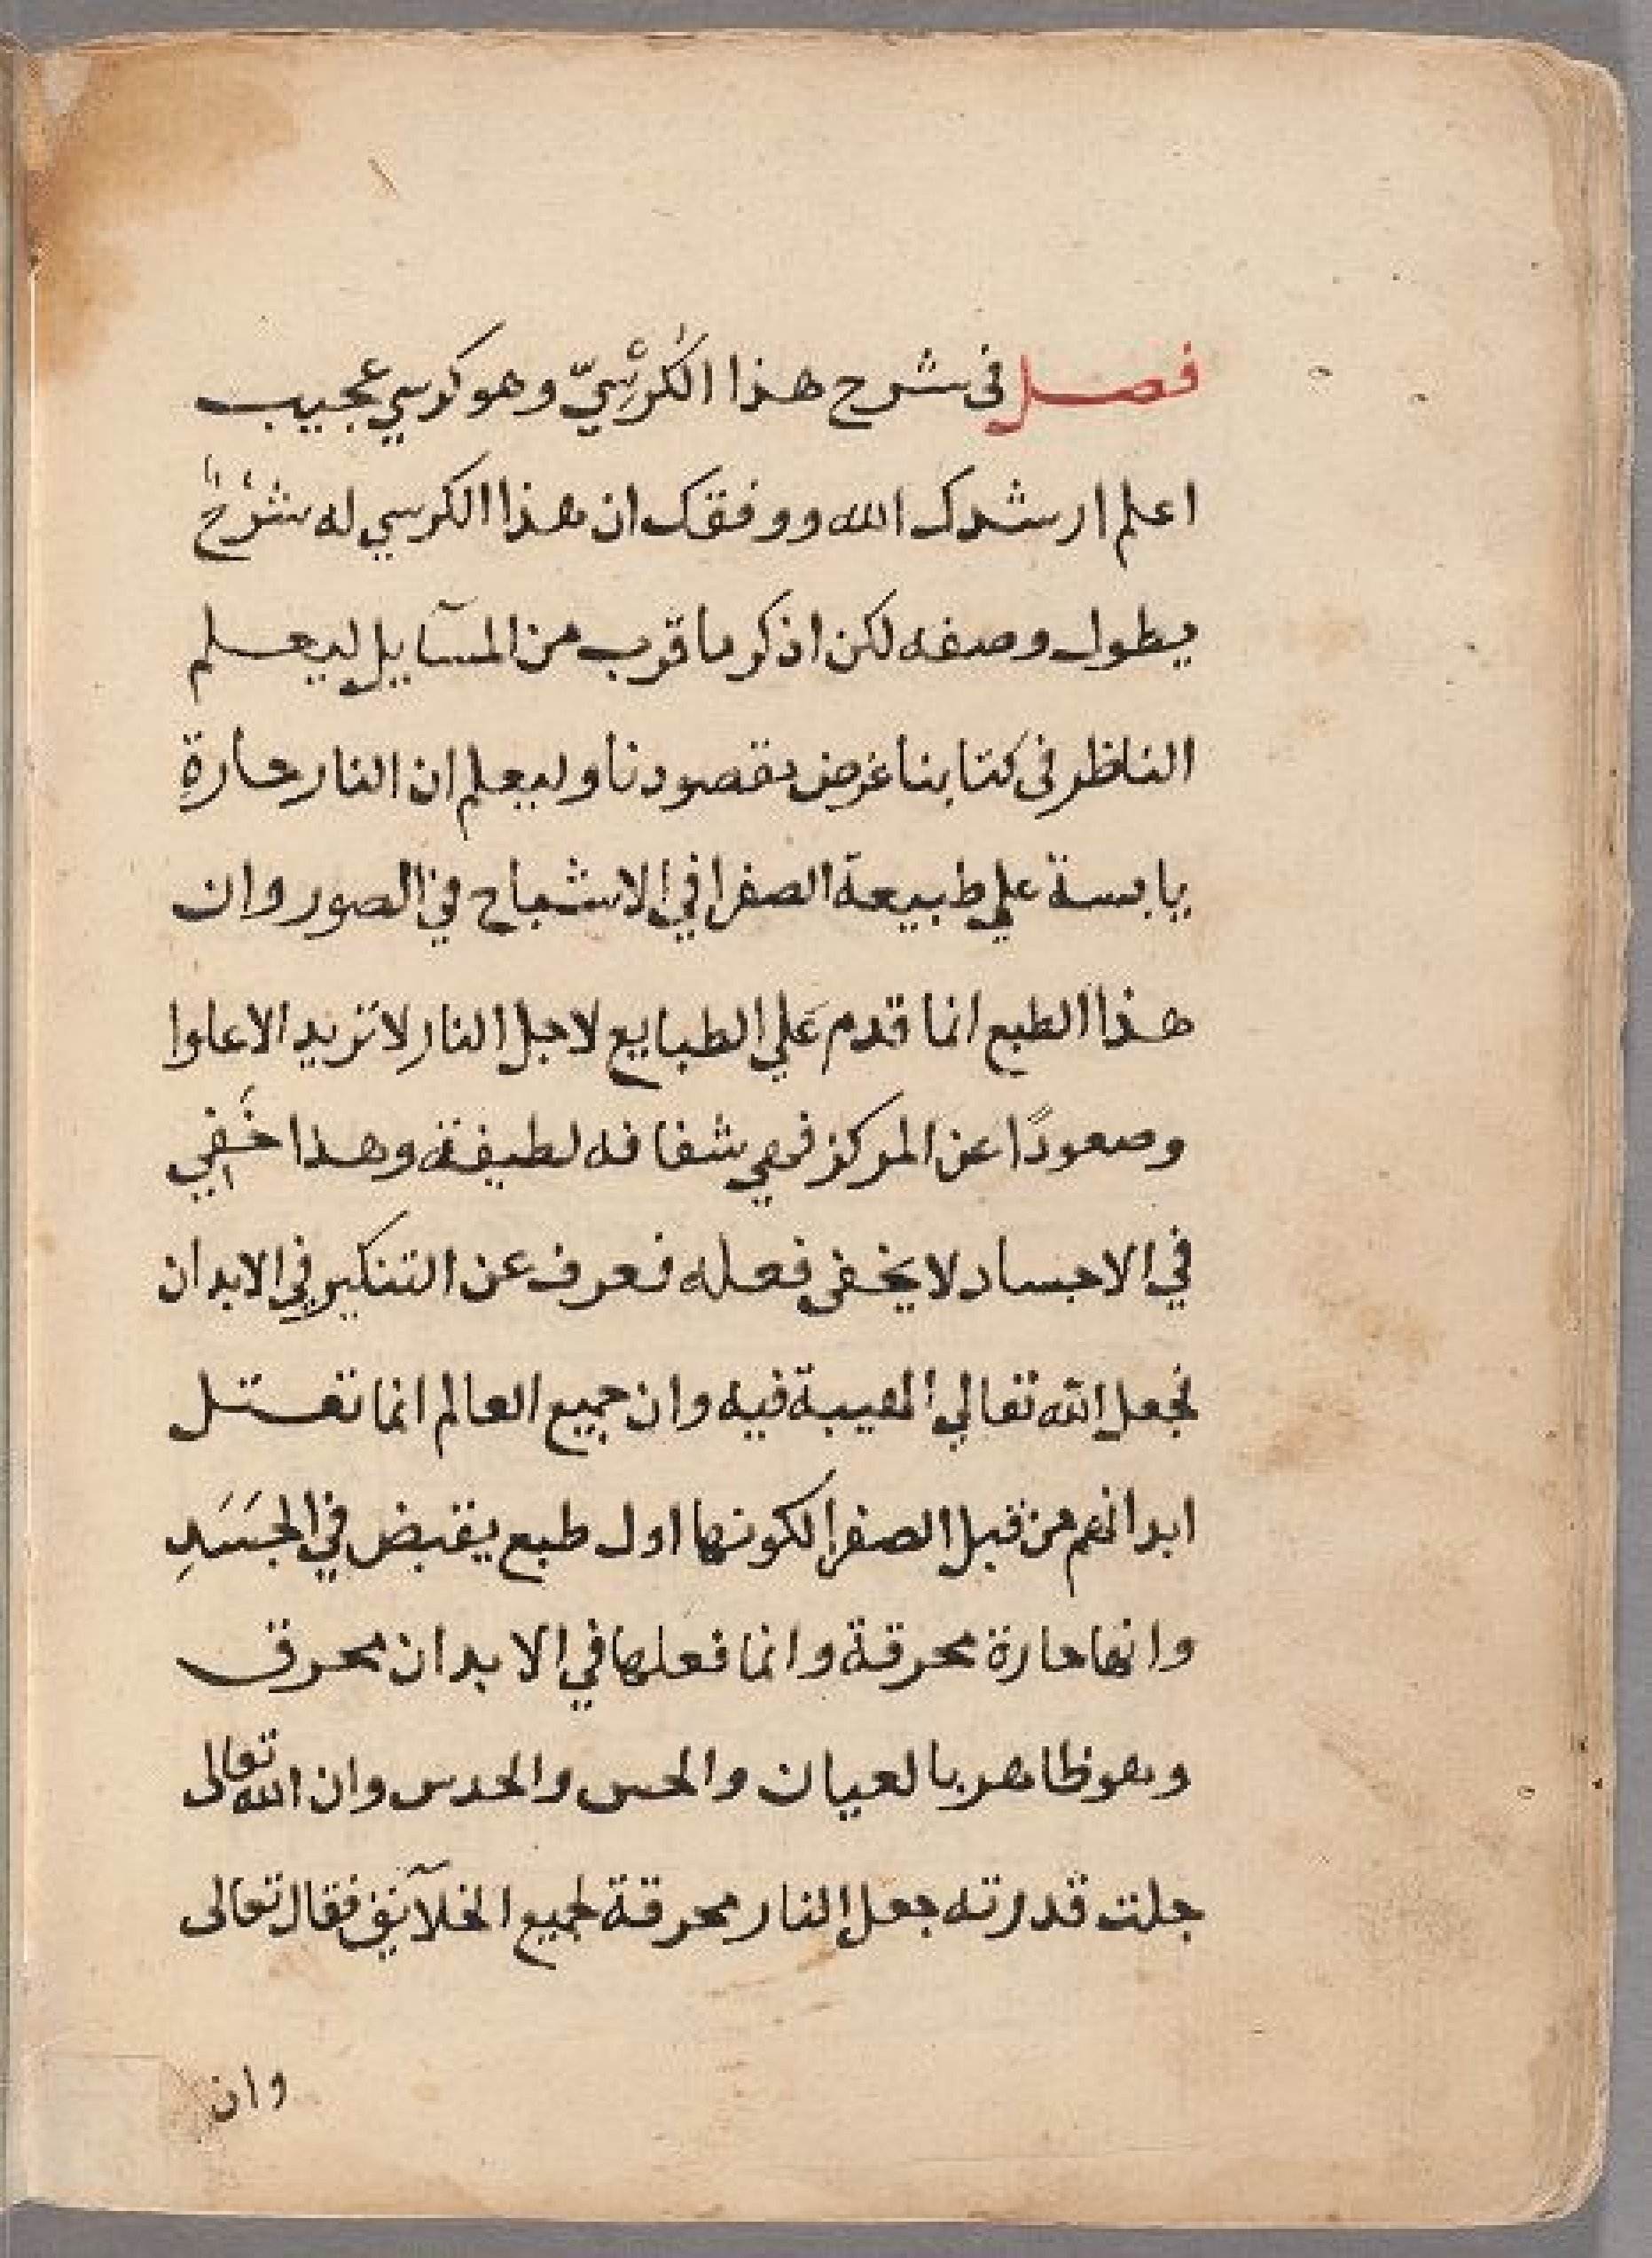 فصل في شرح هذا الكُرْسِيّ وهو كرسي عجيب
اعلم ارشدك الله ووفقك ان هذا الكرسي له شَرْحٌ
يطول وصفه لكن اذكر ما قرب من المسآيل ليعلم
الناظر في كتابنا غرض مقصودنا وليعلم ان النار حارة
يابسة علي طبيعة الصفرا في الاشباح في الصور وان
هذا الطبع انما قدم علي الطبايع لاجل النار لا تزيد الا علوا
وصعودًا عن المركز فهي شفافه لطيفة وهذا خَفِي
في الاجساد لا يخفى فعله فعرف عن التنكير في الابدان
فجعل الله تعالي المعيبة فيه وان جميع العالم انما تعتل
ابدانهم من قبل الصفرا لكونها اول طبع يقبض في الجسَدِ
وانها حارة محرقة وانما فعلها في الابدان محرق
وهو ظاهر بالعيان والحس والحدس وان الله تعالى
جلت قدرته جعل النار محرقة لجميع الخلآئق فقال تعالى
وان